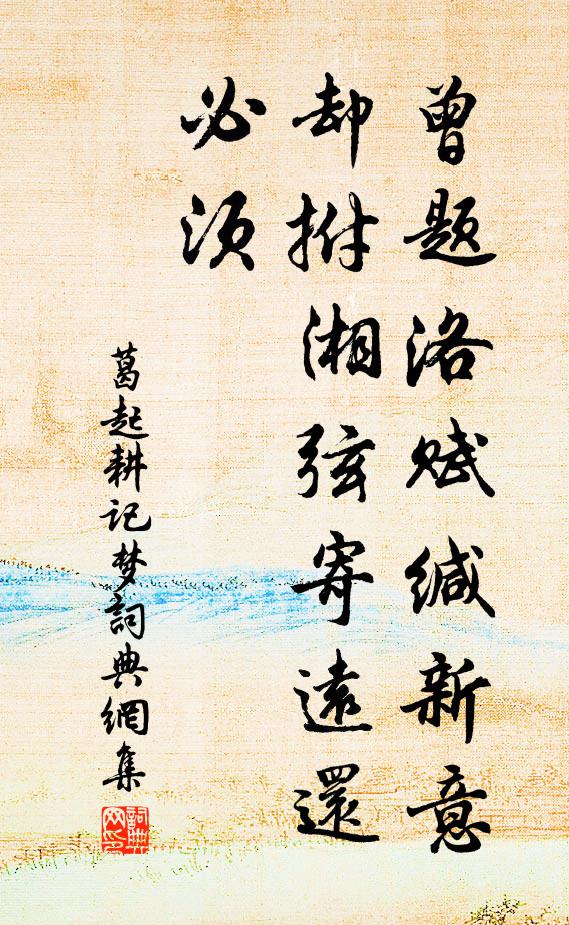 曾题洛赋缄新意
却拊湘弦寄遠還
必须
葛起耕记梦詞典網集
詞典网印